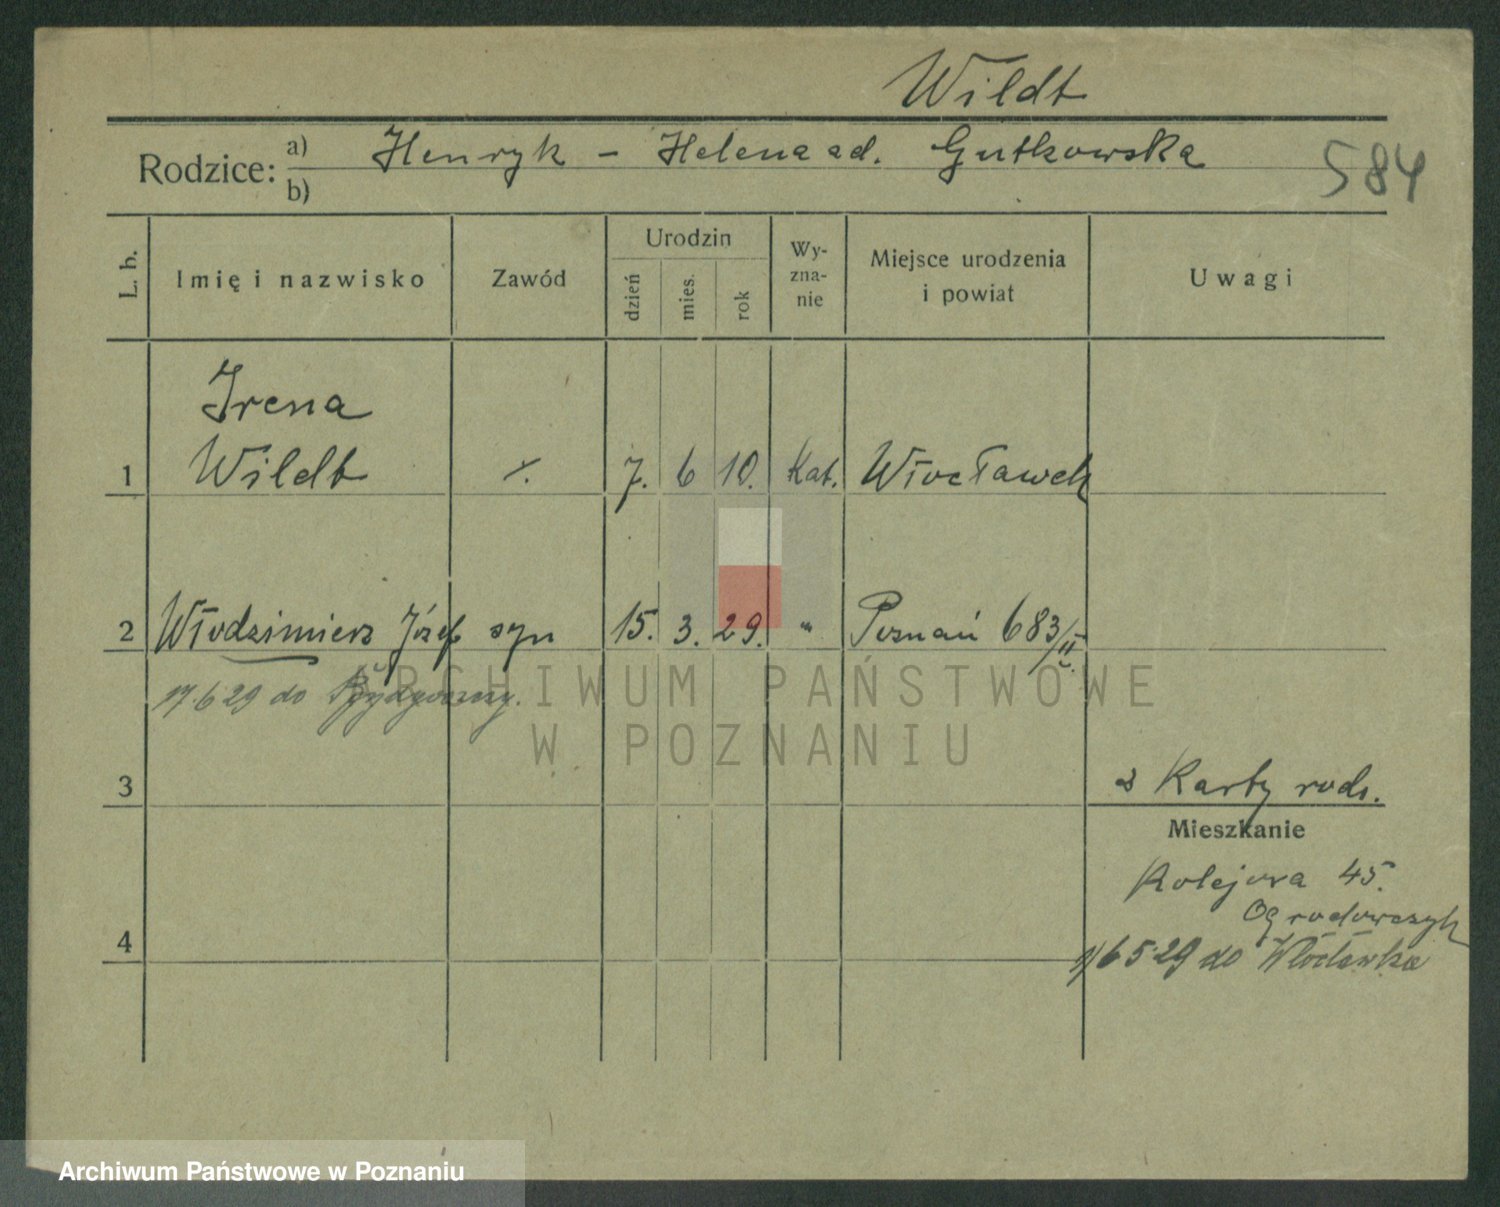 Wildt
Rodzice: a) Henryk - Helena ad. Gutkowska
b)
584
L. b.
Imię i nazwisko
Zawód
Urodzin
dzień
mies.
rok
Wy-
zna-
nie
Miejsce urodzenia
i powiat
Uwagi
Irena
1 Wildt 7. 6 10. Kat. Włocławek
2 Włodzimierz Józef syn 15. 3. 29. " Poznań 683/II
17.6.29 do Bydgoszczy.
ARCHIWUM PAŃSTWOWE
W POZNANIU
3
z Karty rodz.
Mieszkanie
Kolejowa 45.
Ogrodowczyk
4
16 5.29 do Włocławka
Archiwum Państwowe w Poznaniu